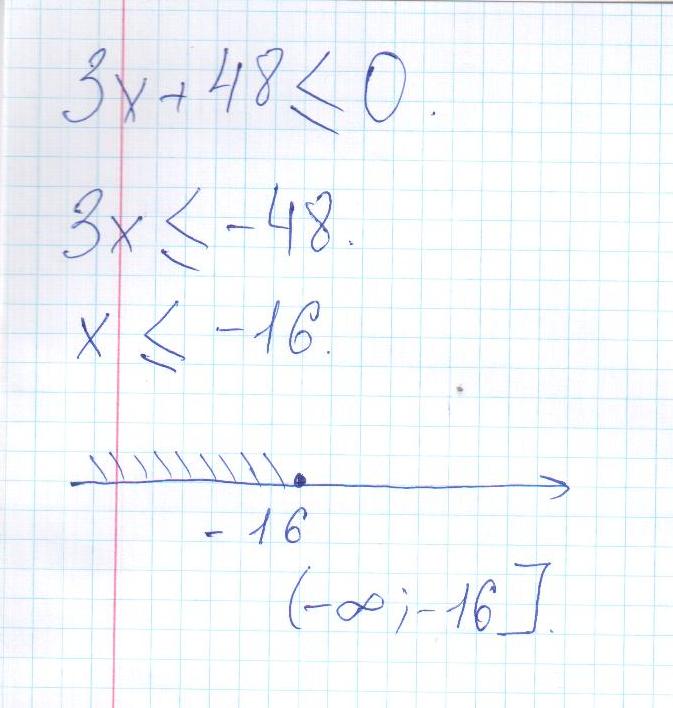 3x + 48 ≤ 0.
3x ≤ -48.
x ≤ -16.
-16
(-∞; -16].